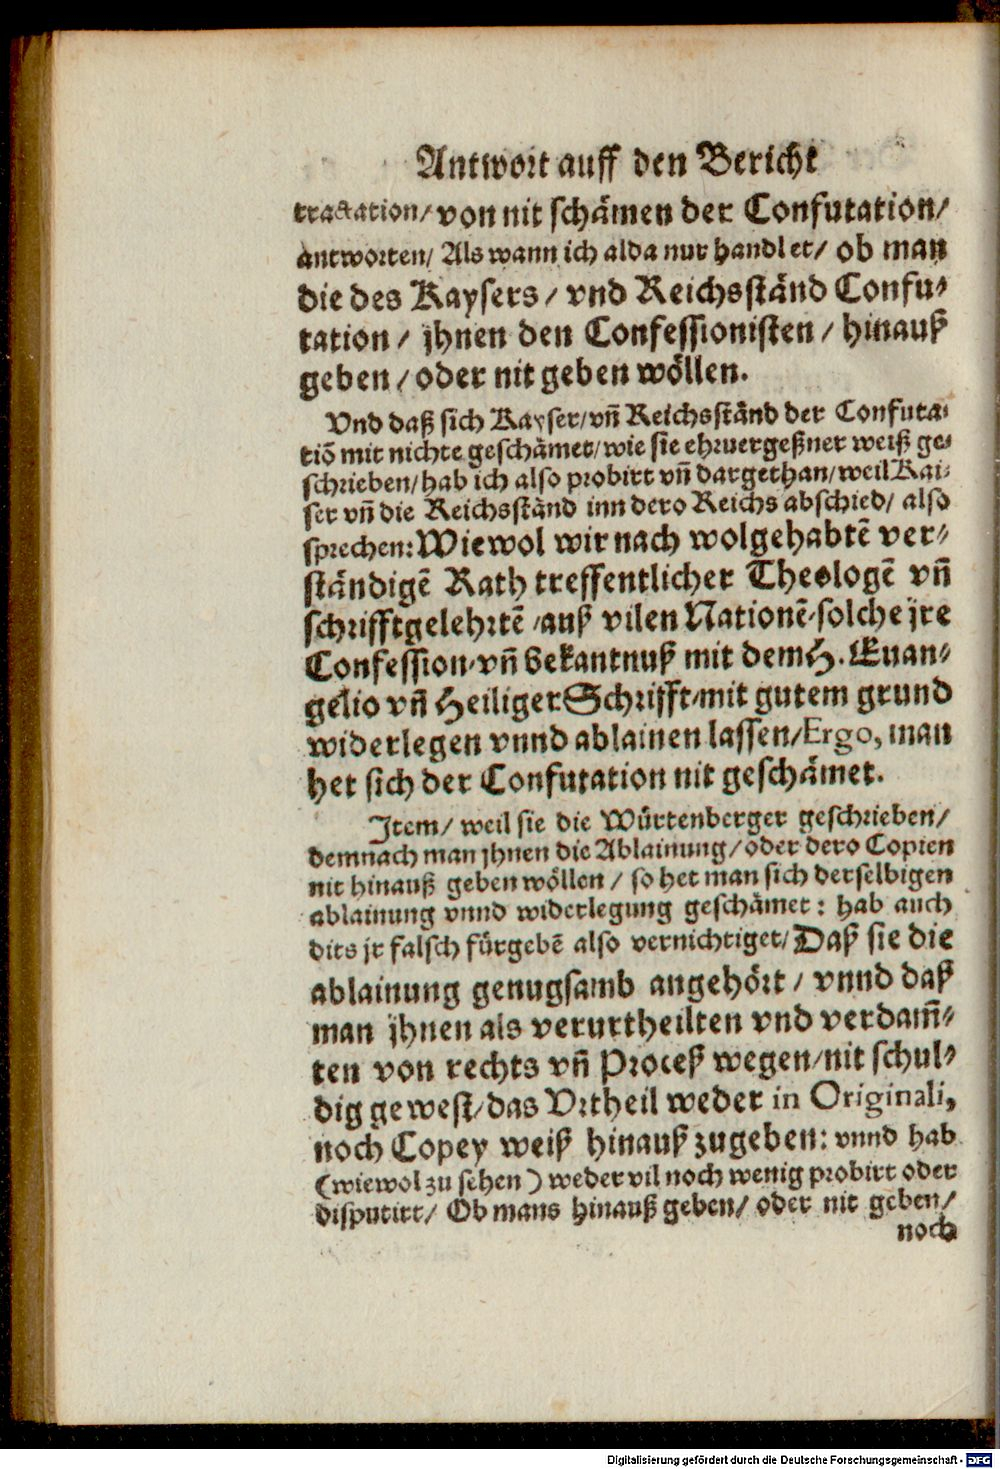 Antwort auff den Bericht
tractation/ von nit schämen der Confutation/
antworten/ Als wann ich alda nur handlet/ ob man
die des Kaysers/ vnd Reichsständ Confu-
tation/ jhnen den Confessionisten/ hinauß
geben/ oder nit geben wöllen.
Vnd daß sich Kayser/ vñ Reichsständ der Confuta-
tiõ mit nichte geschämet/ wie sie ehrvergeßner weiß ge-
schrieben/ hab ich also probirt vñ dargethan/ weil Kai-
ser vñ die Reichsständ inn dero Reichs abschied/ also
sprechen: Wiewol wir nach wolgehabtẽ ver-
ständigẽ Rath treffentlicher Theologẽ vñ
schrifftgelehrtẽ/ auß vilen Nationẽ/ solche jre
Confession/ vñ bekantnuß mit dem H. Euan-
gelio vñ Heiliger Schrifft/ mit gutem grund
widerlegen vnnd ablainen lassen/ Ergo, man
het sich der Confutation nit geschämet.
Item/ weil sie die Würtenberger geschrieben/
demnach man jhnen die Ablainung/ oder dero Copien
nit hinauß geben wöllen/ so het man sich derselbigen
ablainung vnnd widerlegung geschämet: hab auch
dits jr falsch fürgebẽ also vernichtiget/ Daß sie die
ablainung genugsamb angehört/ vnnd daß
man jhnen als verurtheilten vnd verdam̃-
ten von rechts vñ Proceß wegen/ nit schul-
dig gewest/ das Vrtheil weder in Originali,
noch Copey weiß hinauß zugeben: vnnd hab
(wiewol zu sehen) weder vil noch wenig probirt oder
disputirt/ Ob mans hinauß geben/ oder nit geben/
noch
Digitalisierung gefördert durch die Deutsche Forschungsgemeinschaft - DFG